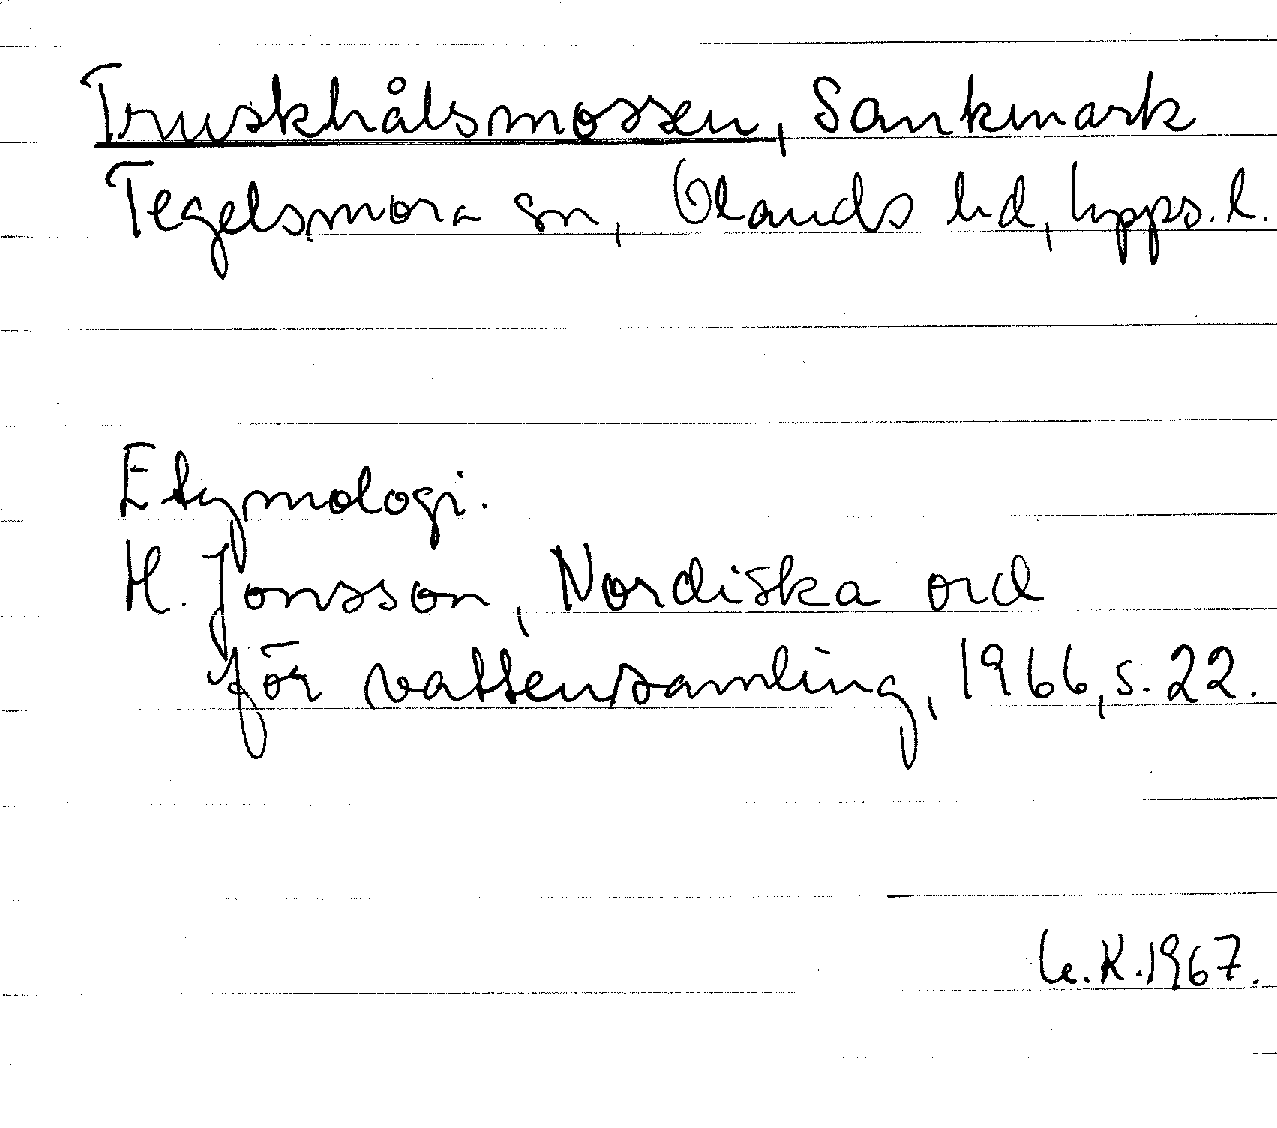 Truskhålsmossen, Sankmark
Tegelsmora sn, Olands hd, Upps. l.
Etymologi.
H. Jonsson, Nordiska ord
för vattensamling, 1966, s. 22.
U.K. 1967.